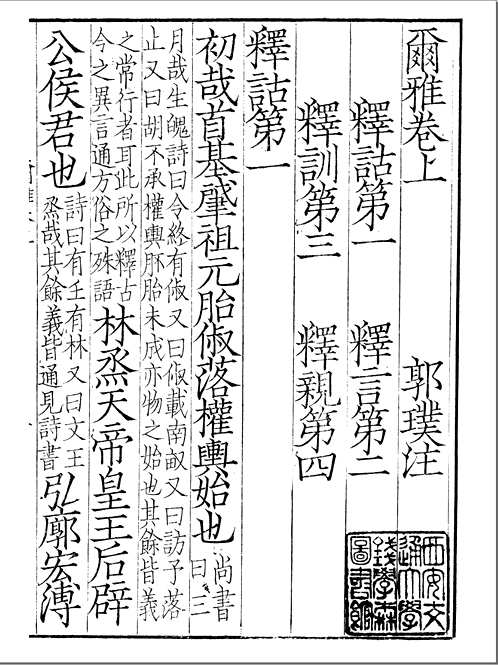 爾雅卷上 郭璞注
釋詁第一 釋言第二
釋訓第三 釋親第四
釋詁第一
初哉首基肈祖元胎俶落權輿始也 尚書
曰三
月哉生魄詩曰令終有俶又曰俶載南畝又曰訪予落
止又曰胡不承權輿胚胎未成亦物之始也其餘皆義
之常行者耳此所以釋古
今之異言通方俗之殊語
林烝天帝皇王后辟
公侯君也
詩曰有壬有林又曰文王
烝哉其餘義皆通見詩書
弘廓宏溥
西安交
通大學
錢學森
圖書館